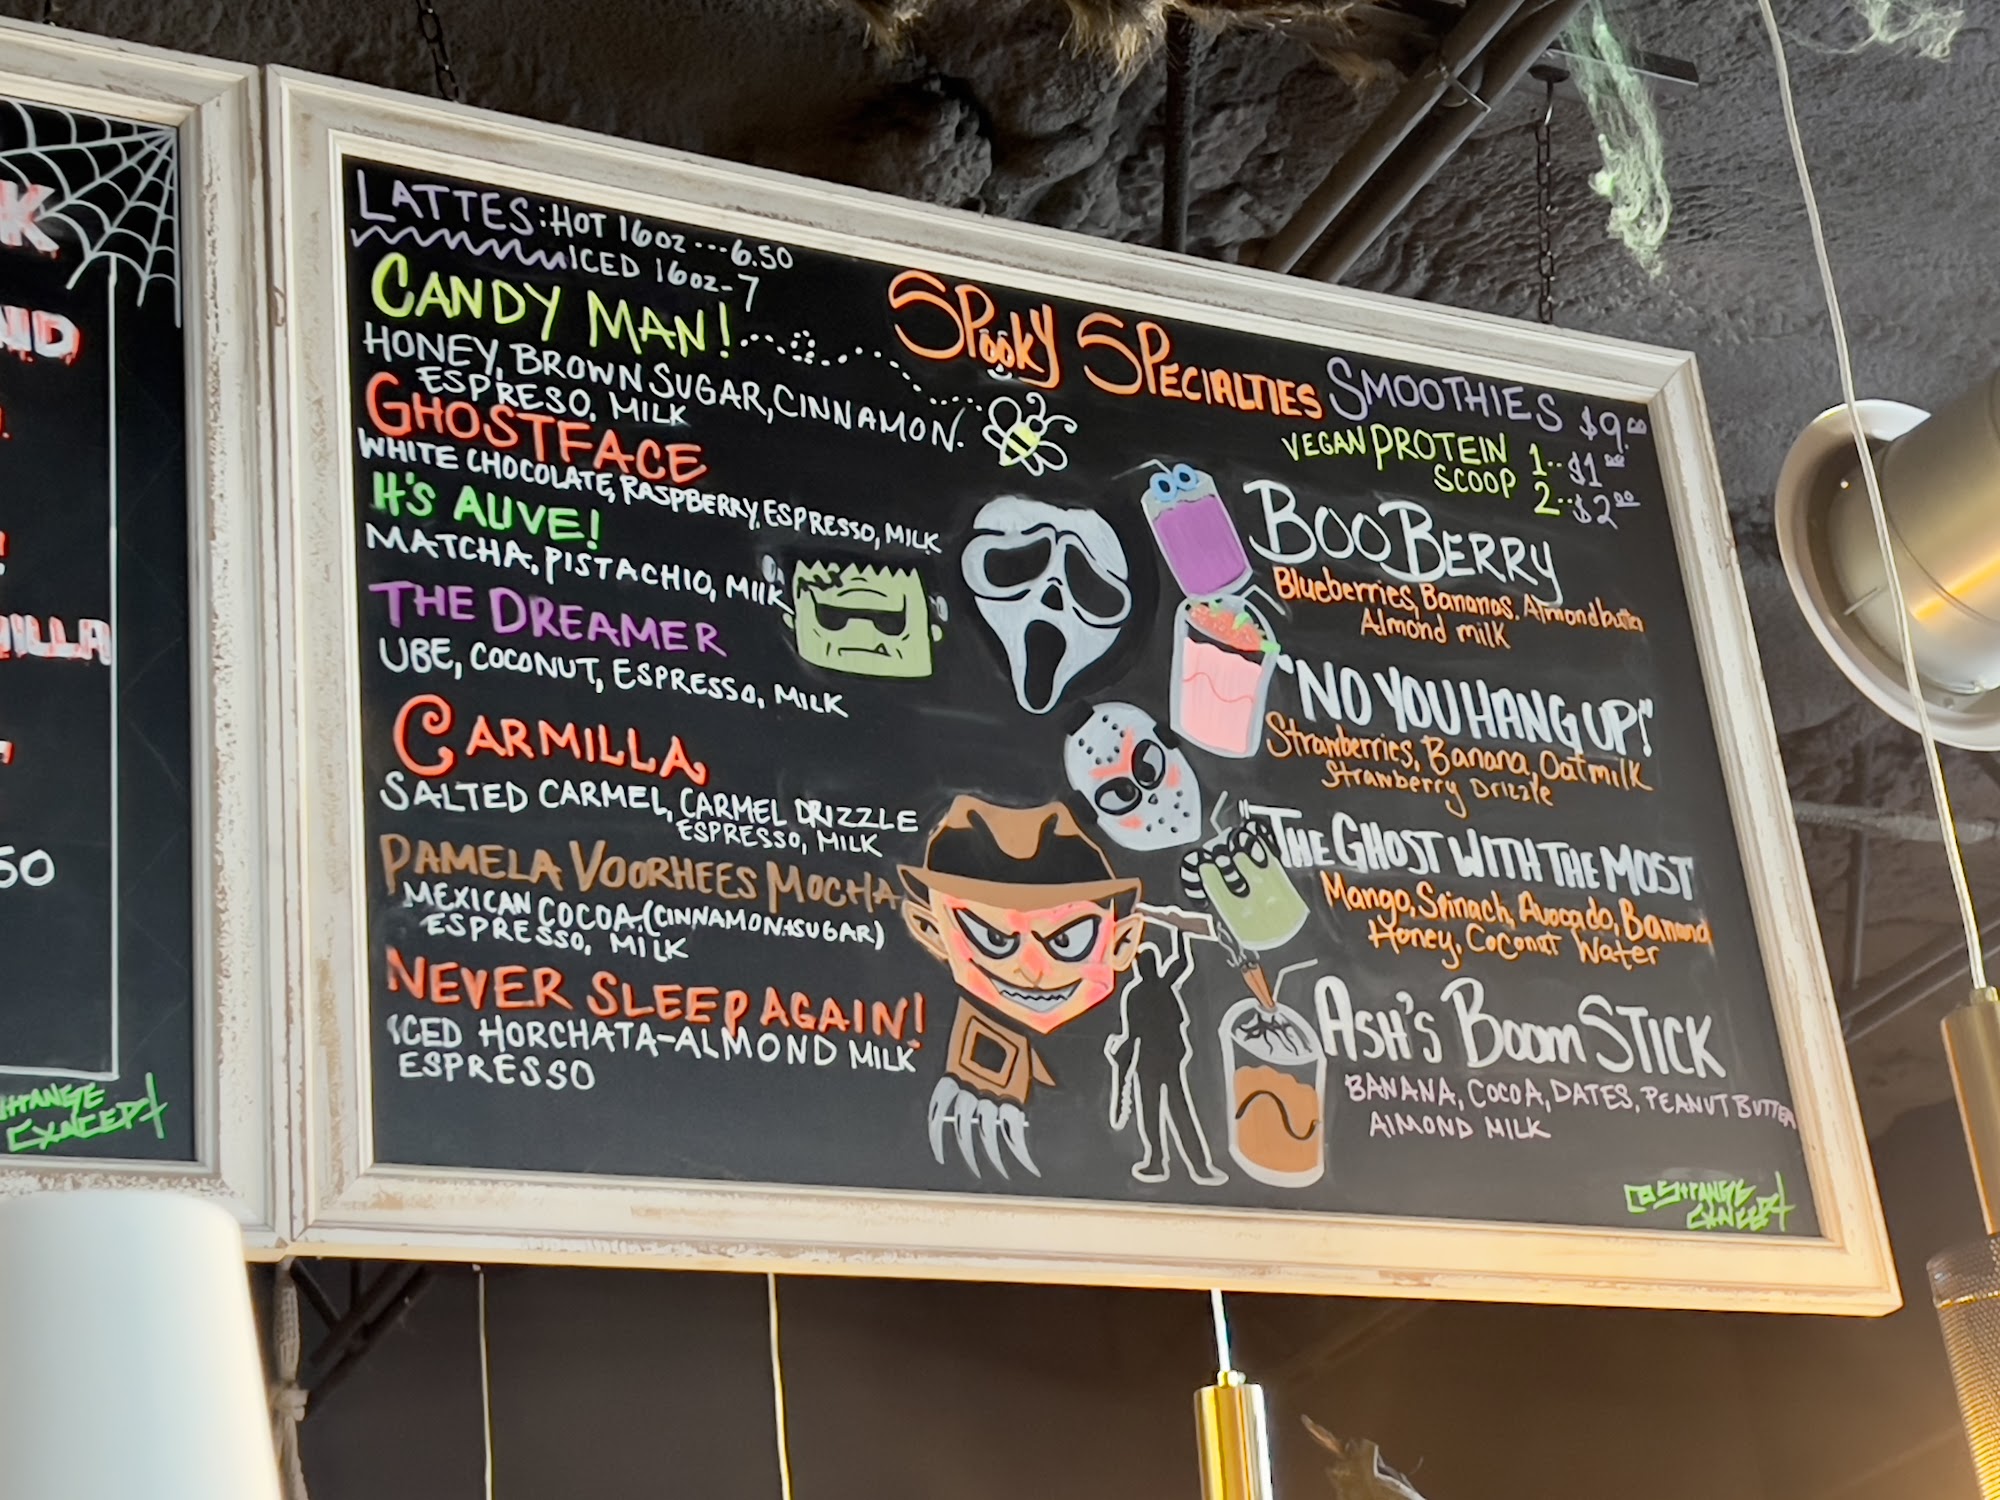 LATTES: HOT 16oz ... 6.50
ICED 16oz - 7
CANDY MAN!
HONEY, BROWN SUGAR, CINNAMON.
ESPRESO, MILK
GHOSTFACE
WHITE CHOCOLATE, RASPBERRY, ESPRESSO, MILK
It's ALIVE!
MATCHA, PISTACHIO, MILK
THE DREAMER
UBE, COCONUT, ESPRESSO, MILK
CARMILLA
SALTED CARMEL, CARMEL DRIZZLE
ESPRESSO, MILK
PAMELA VOORHEES MOCHA
MEXICAN COCOA, (CINNAMON+SUGAR)
ESPRESSO, MILK
NEVER SLEEP AGAIN!
ICED HORCHATA-ALMOND MILK
ESPRESSO
SPOOKY SPECIALTIES
SMOOTHIES $9.00
VEGAN PROTEIN 1.. $1.00
SCOOP 2.. $2.00
BOO BERRY
Blueberries, Bananas, Almond butter
Almond milk
"NO YOU HANG UP!"
Strawberries, Banana, Oatmilk
Strawberry Drizzle
"THE GHOST WITH THE MOST
Mango, Spinach, Avocado, Banana
Honey, Coconut Water
ASH'S BOOM STICK
BANANA, COCOA, DATES, PEANUT BUTTER
AlMOND MILK
ILLA
50